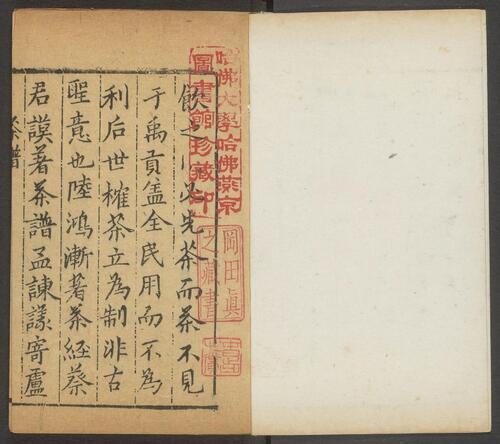 飲之必先茶而茶不見
于禹貢盖全民用而不為
利后世榷茶立為制非古
聖意也陸鴻漸著茶經蔡
君謨著茶譜孟諫議寄盧
茶譜
哈佛大學哈佛燕京
圖書館珍藏印
岡田眞
之藏書